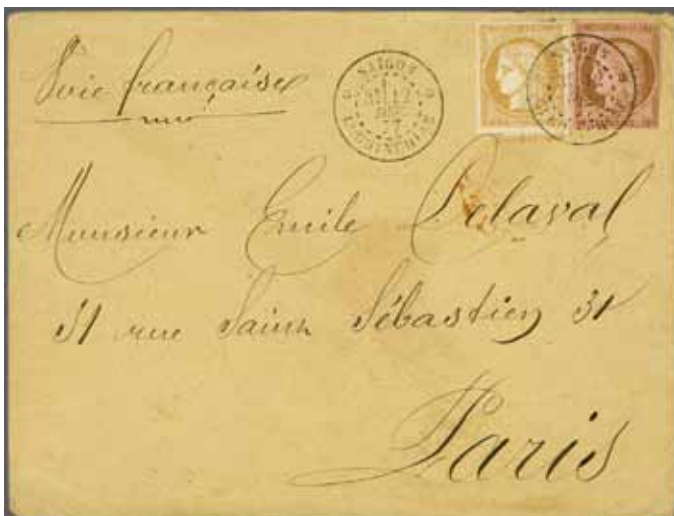 Voie française
SAIGON
COCHINCHINE
Monsieur Emile Delaval
31 rue Saint Sébastien 31
Paris